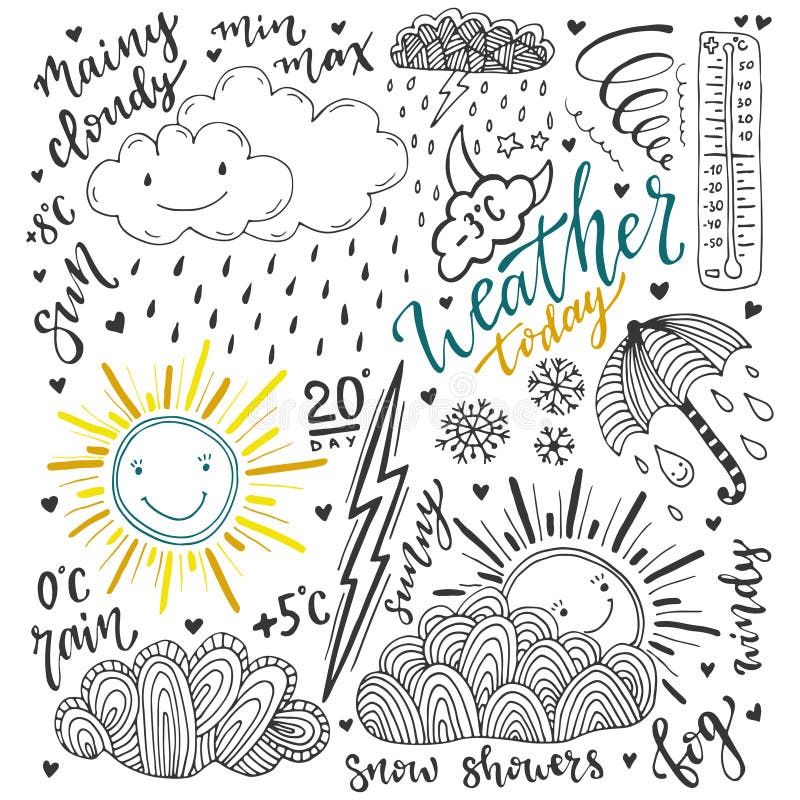 mainy
cloudy
min
max
+ °C
50
40
30
20
10
-10
-20
-30
-40
-50
+8°C
sun
-3°C
weather
today
20°
DAY
sunny
windy
0°C
rain
+5°C
fog
snow showers